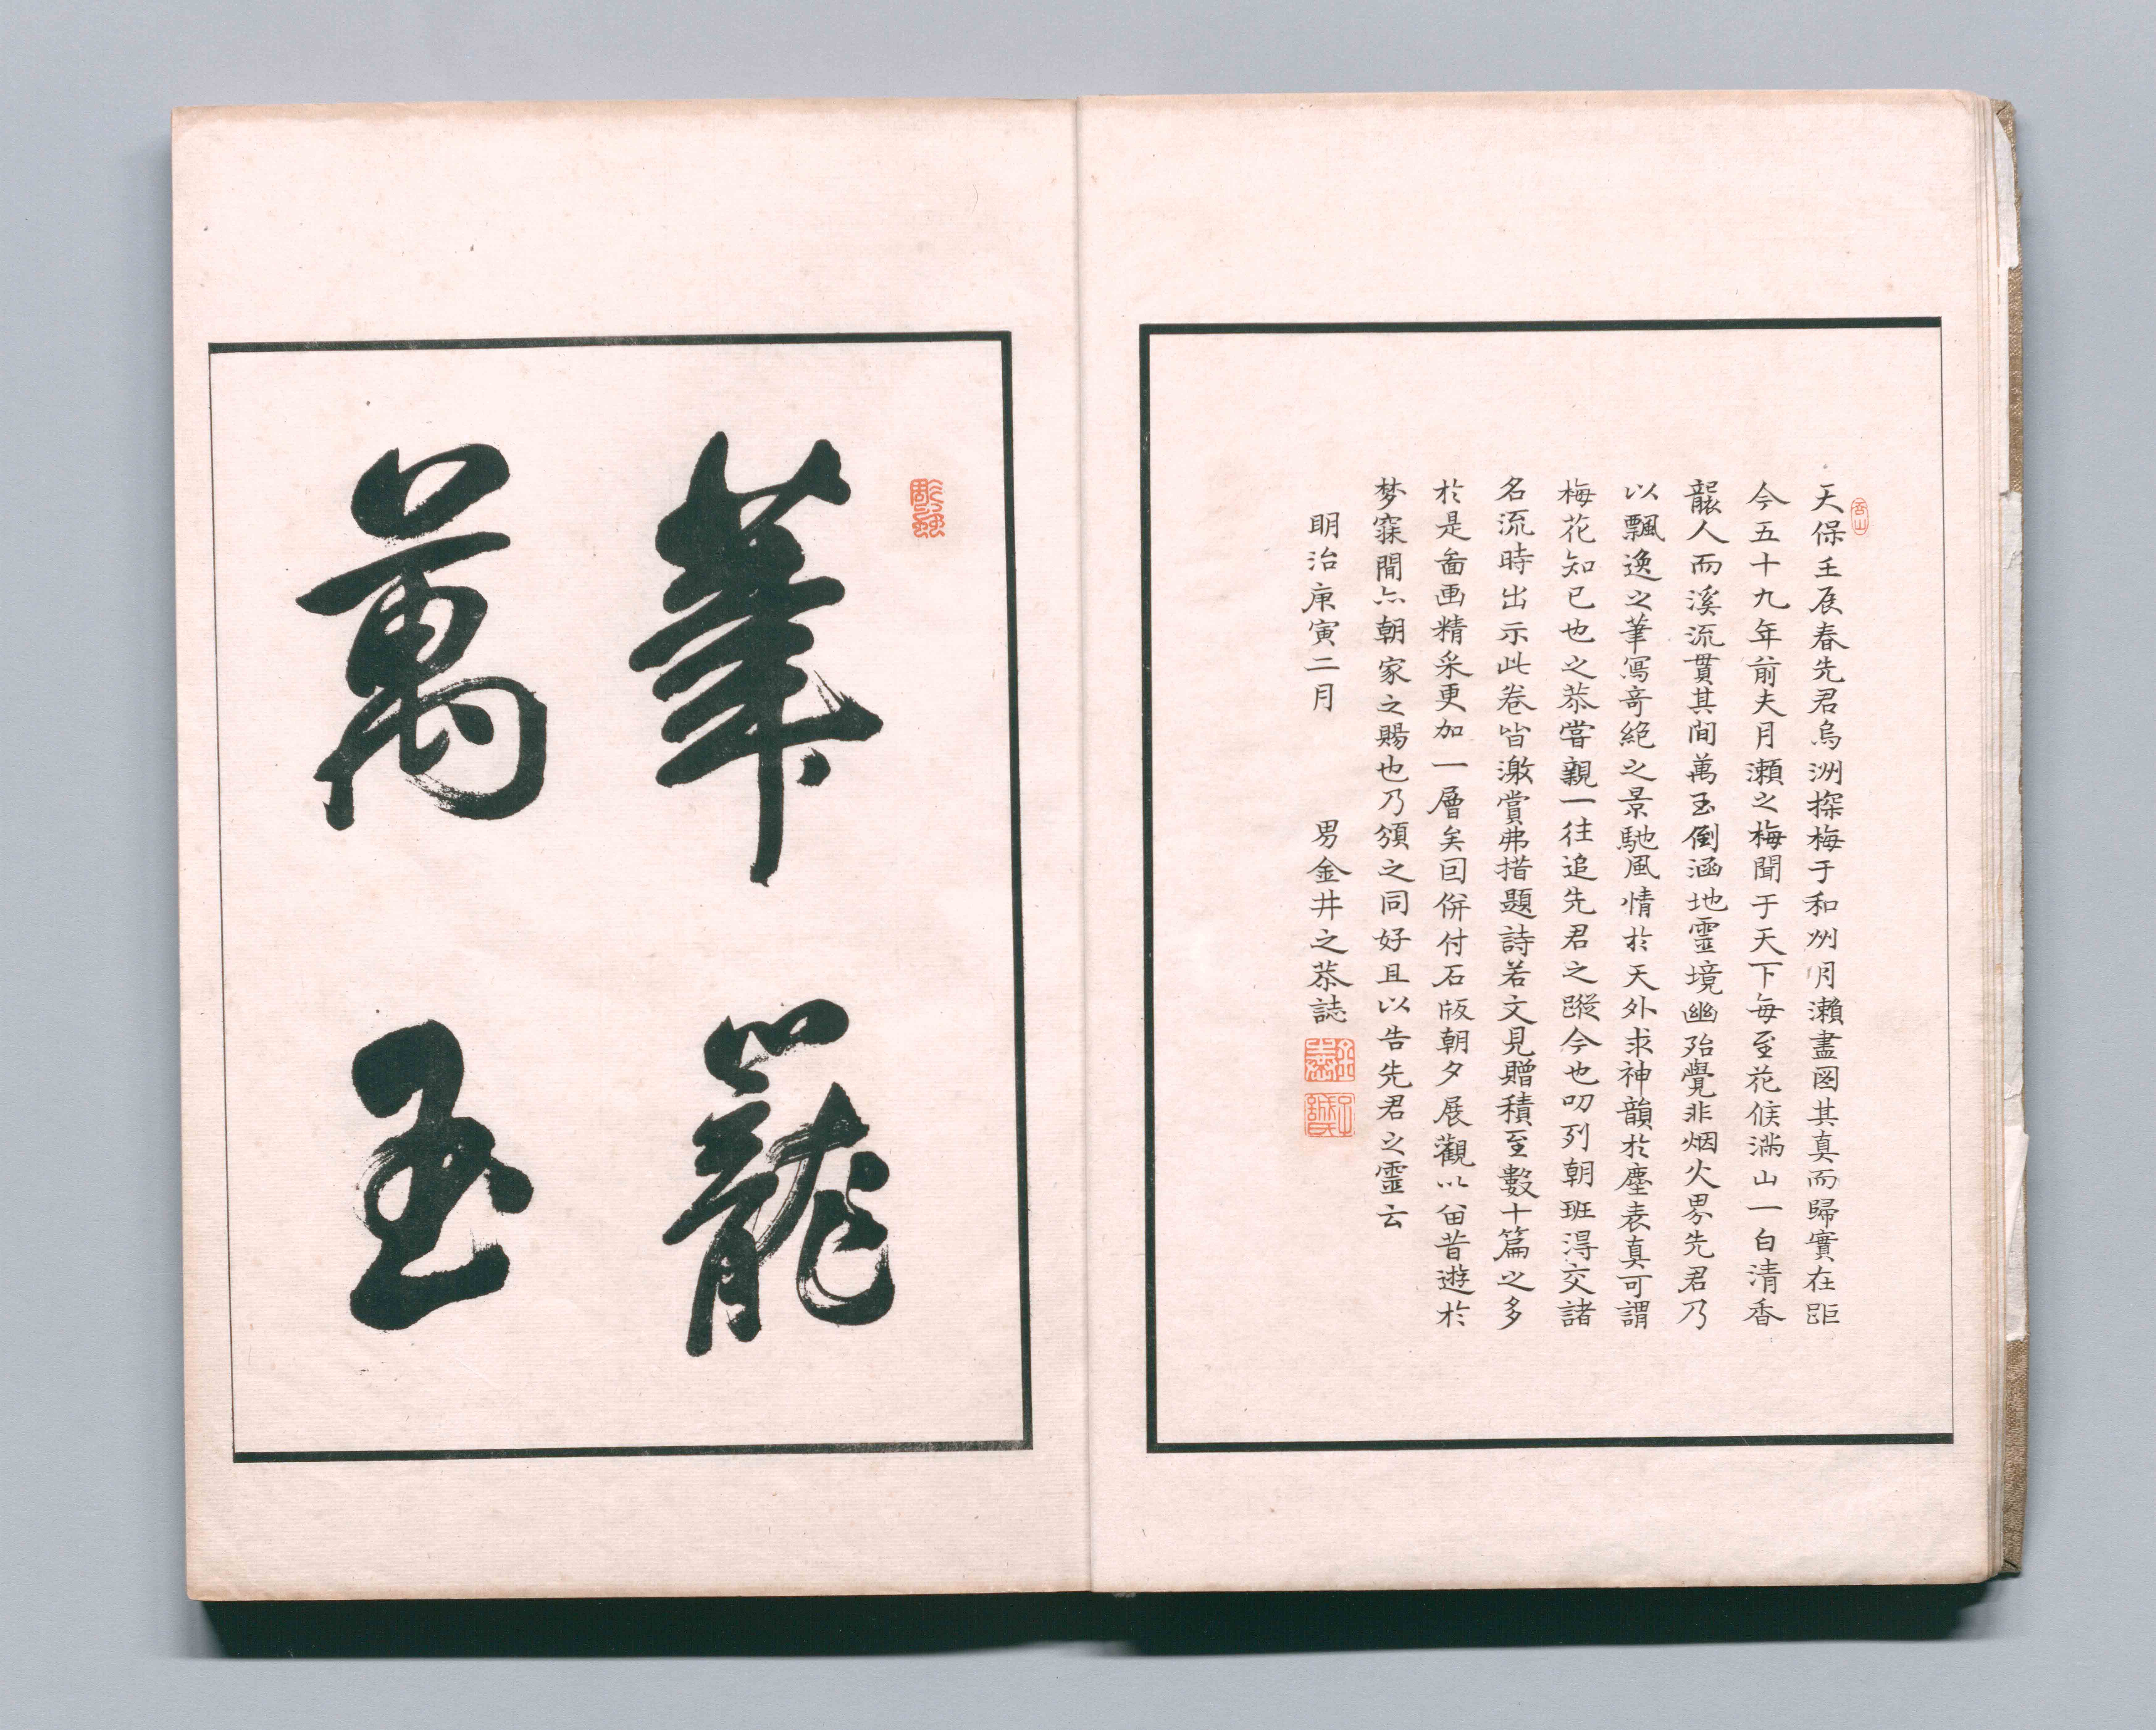 天保壬辰春先君烏洲探梅于和州月瀨盡圖其真而歸實在距
今五十九年前夫月瀨之梅聞于天下每至花候滿山一白清香
襲人而溪流貫其間萬玉倒涵地靈境幽殆覺非烟火界先君乃
以飄逸之筆寫奇絕之景馳風情於天外求神韻於塵表真可謂
梅花知己也之恭嘗親一往追先君之蹤今也叨列朝班得交諸
名流時出示此卷皆激賞弗措題詩若文見贈積至數十篇之多
於是畫画精采更加一層矣因併付石版朝夕展觀以留昔遊於
梦寐間亦朝家之賜也乃頒之同好且以告先君之靈云
明治庚寅二月
男金井之恭誌
筆籠
萬玉